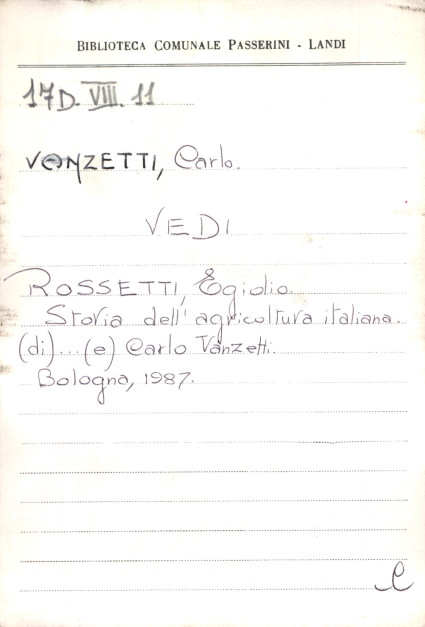 BIBLIOTECA COMUNALE PASSERINI - LANDI
17D. VIII. 11
VANZETTI, Carlo.
VEDI
ROSSETTI, Egidio.
Storia dell'agricoltura italiana.
(di)...(e) Carlo Vanzetti.
Bologna, 1987.